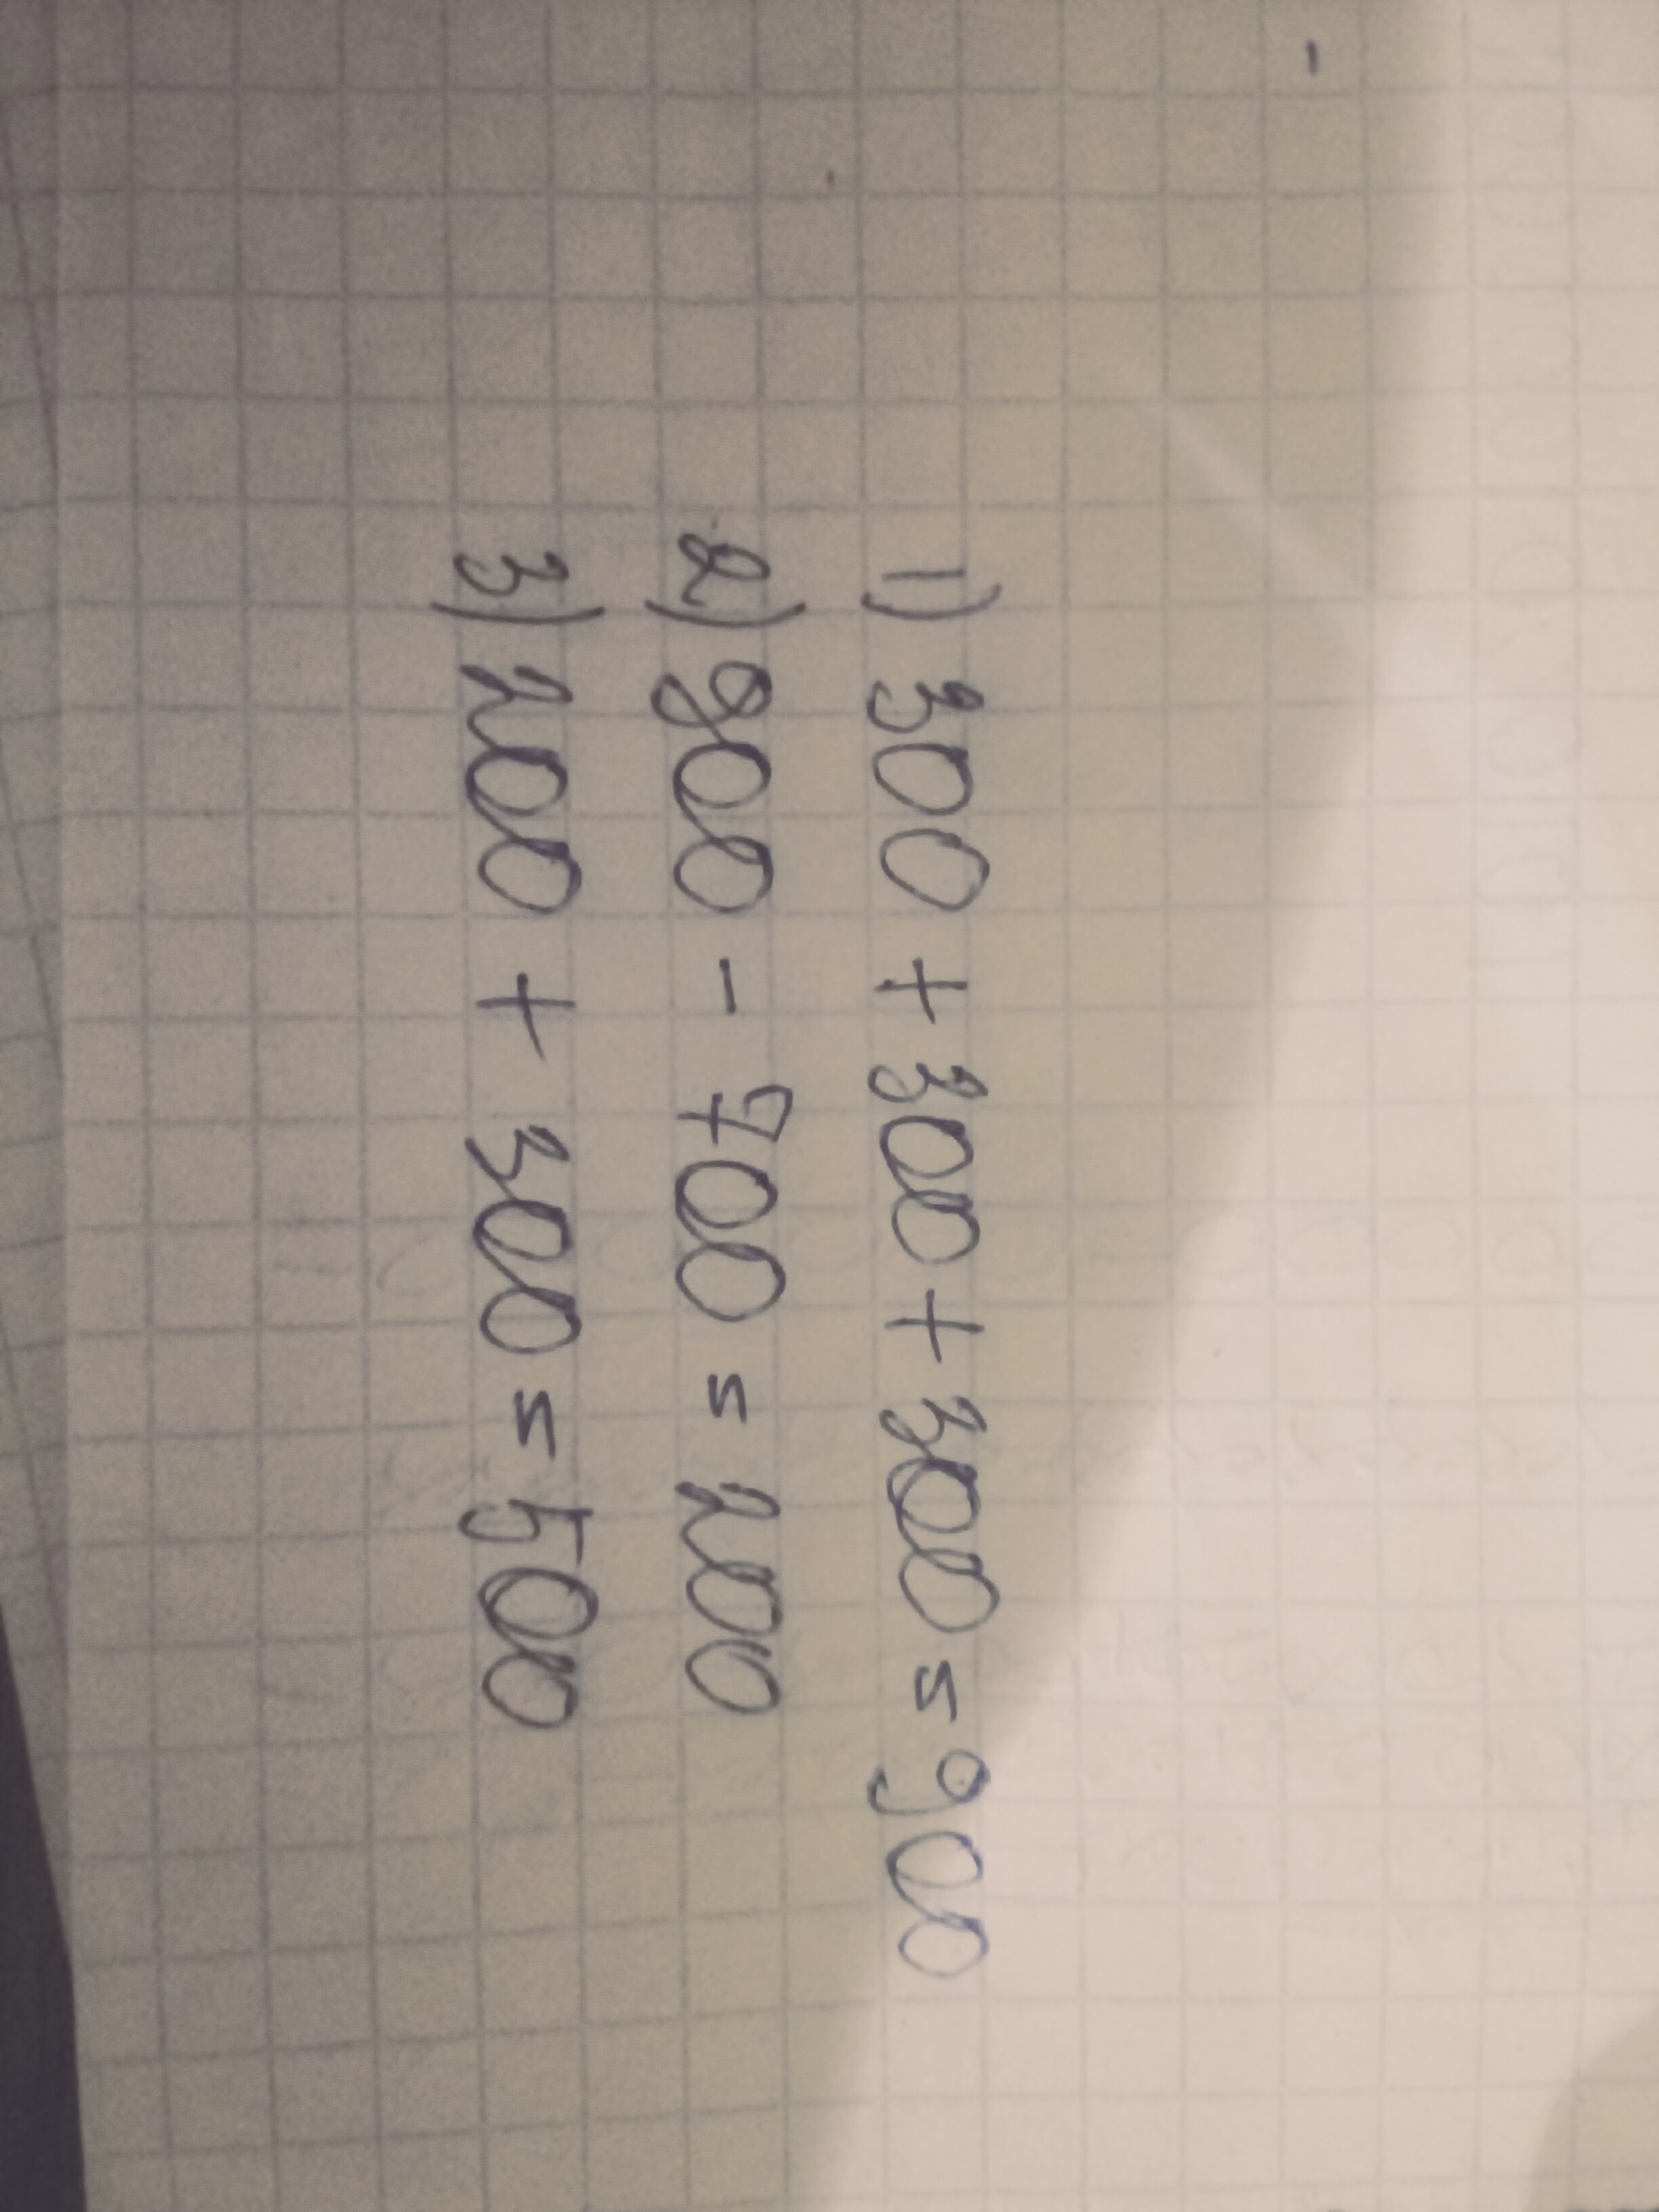 1) 300 + 300 + 300 = 900
2) 900 - 700 = 200
3) 200 + 300 = 500